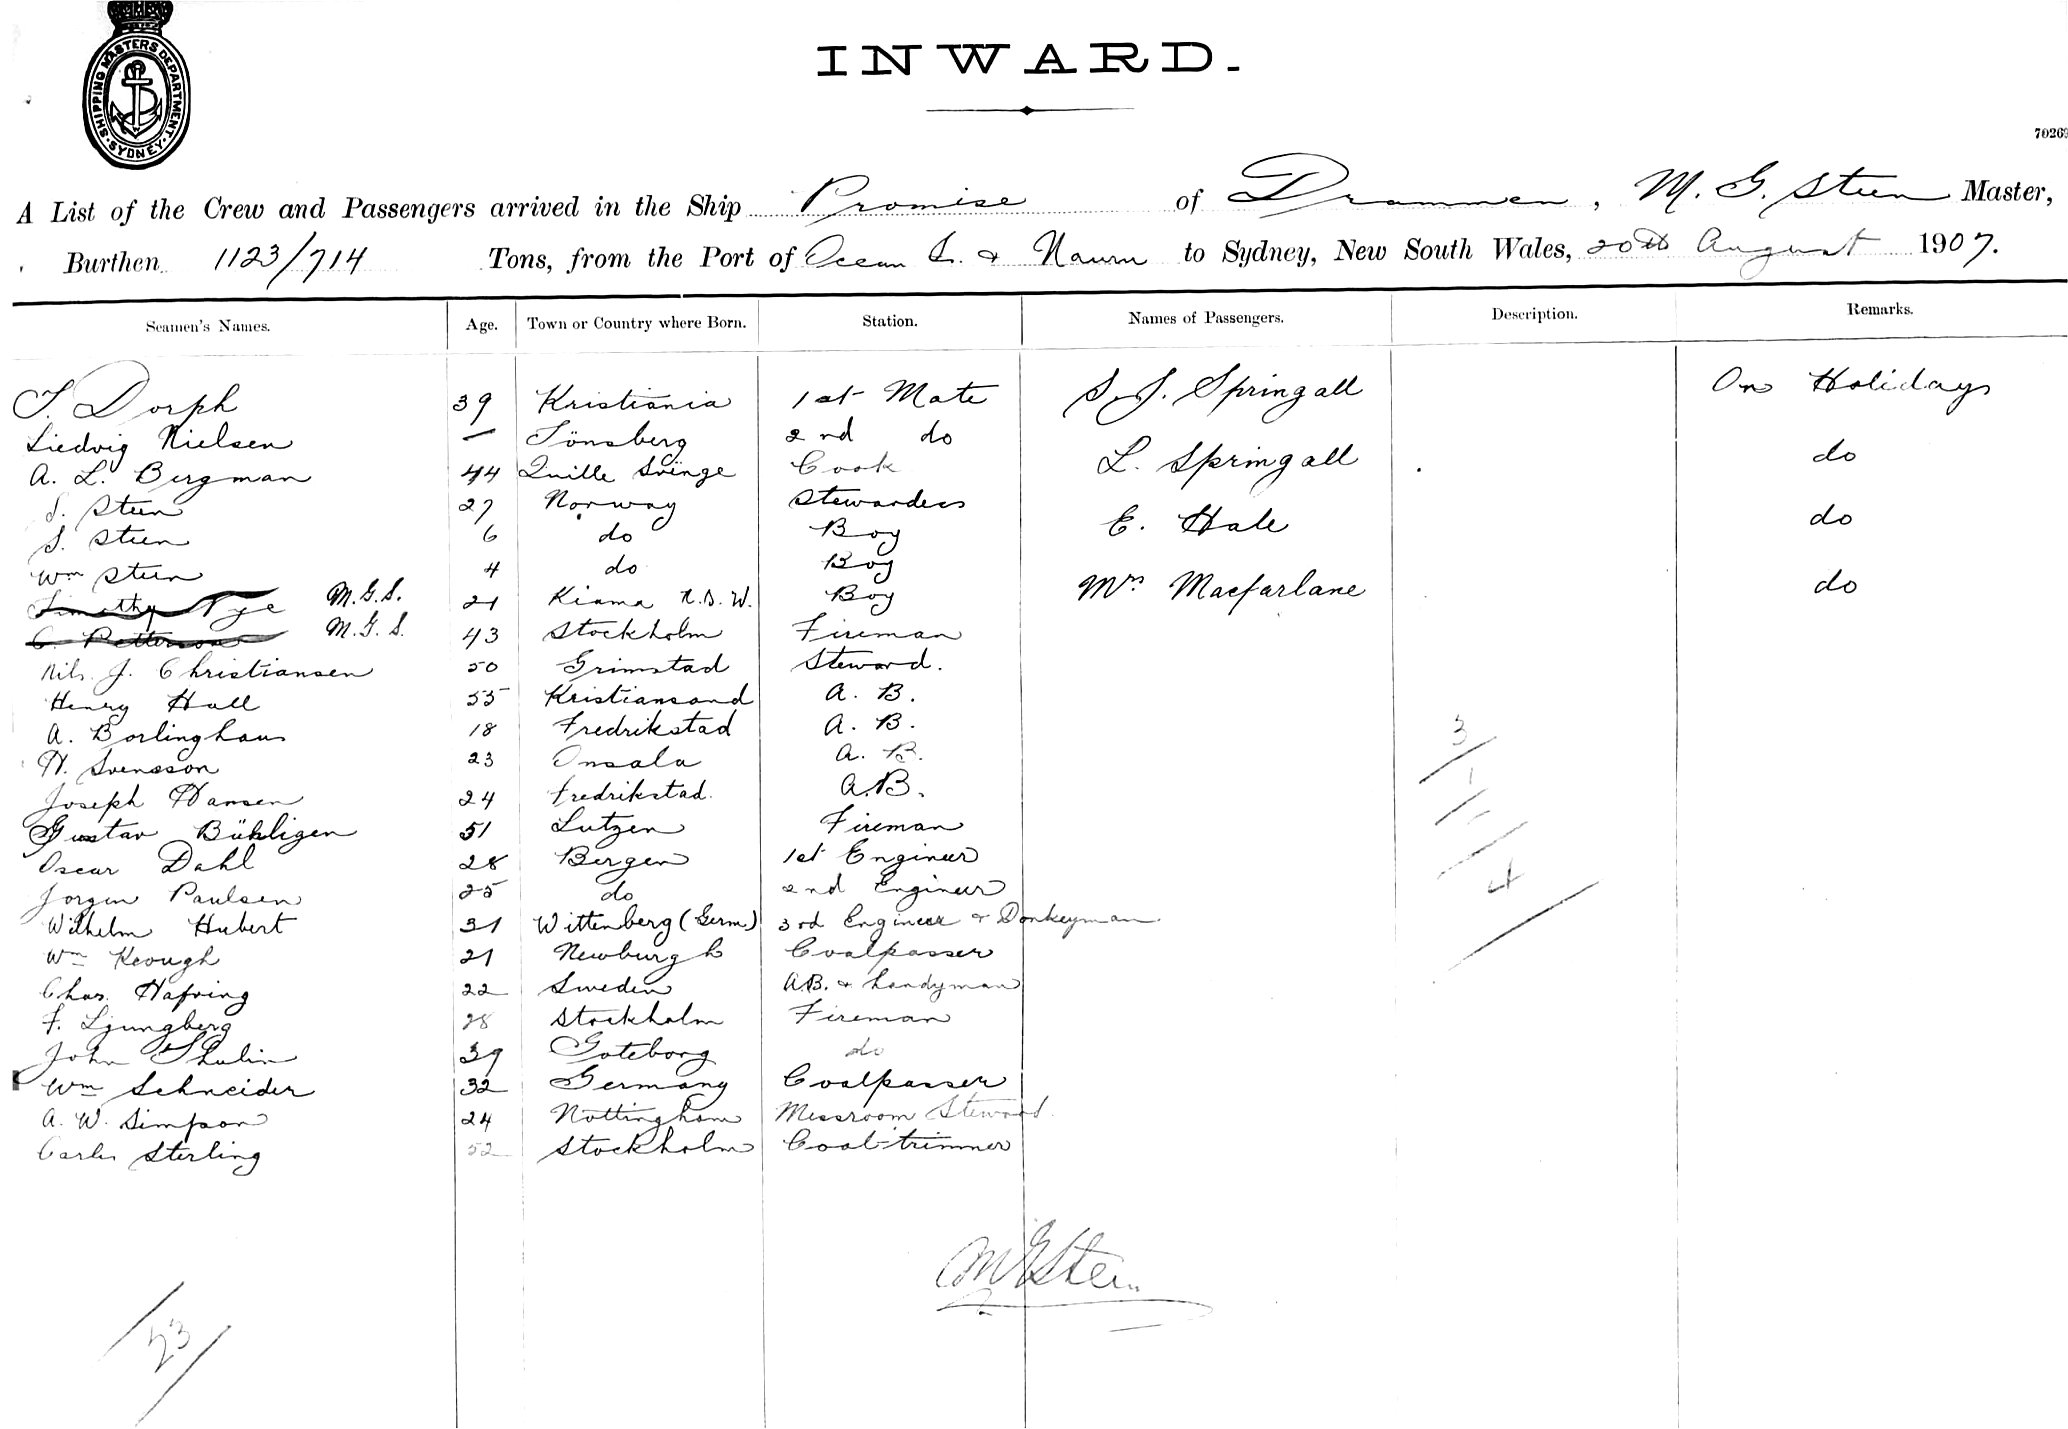 SHIPPING MASTERS DEPARTMENT
SYDNEY
INWARD.
70269
A List of the Crew and Passengers arrived in the Ship Promise of Drammen, M. G. Steen Master,
Burthen 1123/714 Tons, from the Port of Ocean I. & Nauru to Sydney, New South Wales, 20th August 1907.
Seamen's Names. Age. Town or Country where Born. Station. Names of Passengers. Description. Remarks.
T. Dorph 39 Kristiania 1st Mate S. J. Springall On Holidays
Liedvig Nielsen — Tönsberg 2nd do
A. L. Bergman 44 Quille Svinge Cook L. Springall do
S. Steen 27 Norway Stewardess
S. Steen 6 do Boy E. Hale do
Wm Steen 4 do Boy
Timothy Nye M.G.S. 21 Kiama N.S.W. Boy Mrs Macfarlane do
C. Petterson M.G.S. 43 Stockholm Fireman
Nils. J. Christiansen 50 Grimstad Steward.
Henry Hall 55 Kristiansand A. B.
A. Borlinghaus 18 Fredrikstad A. B.
H. Svensson 23 Onsala A. B.
Joseph Hansen 24 Fredrikstad. A.B.
Gustav Bühligen 51 Lutzen Fireman
Oscar Dahl 28 Bergen 1st Engineer
Jorgen Paulsen 25 do 2nd Engineer
Wilhelm Hubert 31 Wittenberg (Germ) 3rd Engineer & Donkeyman
Wm Keough 21 Newburgh Coalpasser
Chas. Hafving 22 Sweden A.B. & handyman
F. Ljungberg 28 Stockholm Fireman
John Thulin 39 Goteborg do
Wm Schneider 32 Germany Coalpasser
A. W. Simpson 24 Nottingham Messroom Steward.
Carles Sterling 52 Stockholm Coal trimmer
3
1
4
MGSteen
23